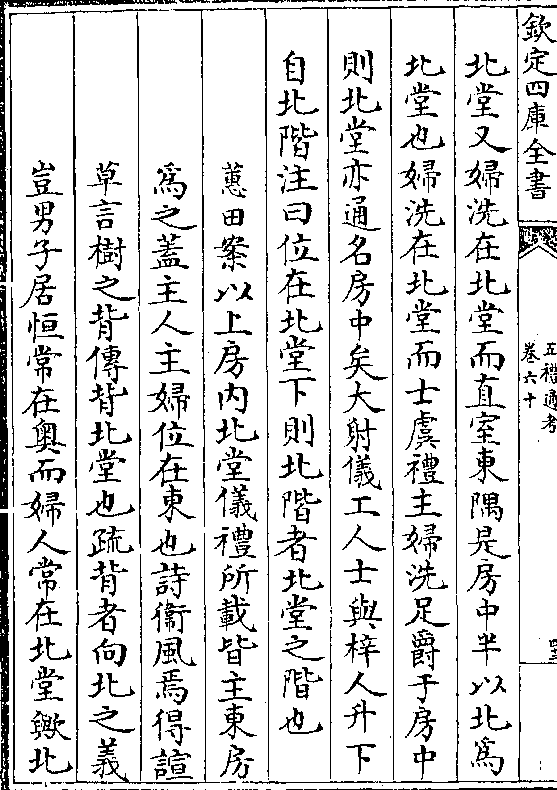 欽定四庫全書
五禮通考
卷六十
北堂又婦洗在北堂而直室東隅是房中半以北為
北堂也婦洗在北堂而士虞禮主婦洗足爵于房中
則北堂亦通名房中矣大射儀工人士與梓人升下
自北階注曰位在北堂下則北階者北堂之階也
蕙田案以上房内北堂儀禮所載皆主東房
為之蓋主人主婦位在東也詩衞風焉得諠
草言樹之背傳背北堂也疏背者向北之義
豈男子居恒常在奥而婦人常在北堂歟北